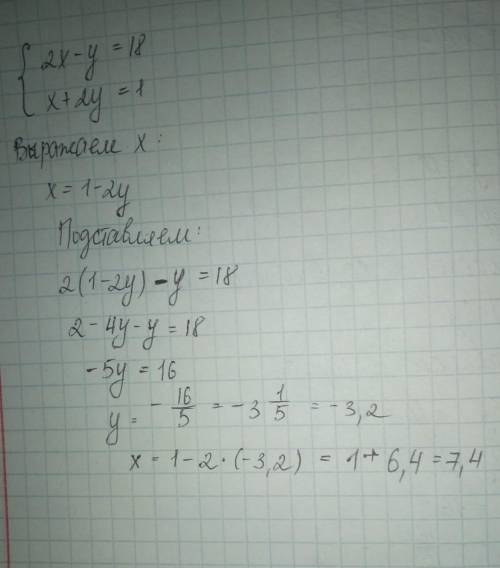 2x-y=18
x+2y=1
Выражаем x:
x=1-2y
Подставляем:
2(1-2y)-y=18
2-4y-y=18
-5y=16
y=-16/5=-3 1/5=-3,2
x=1-2·(-3,2)=1+6,4=7,4